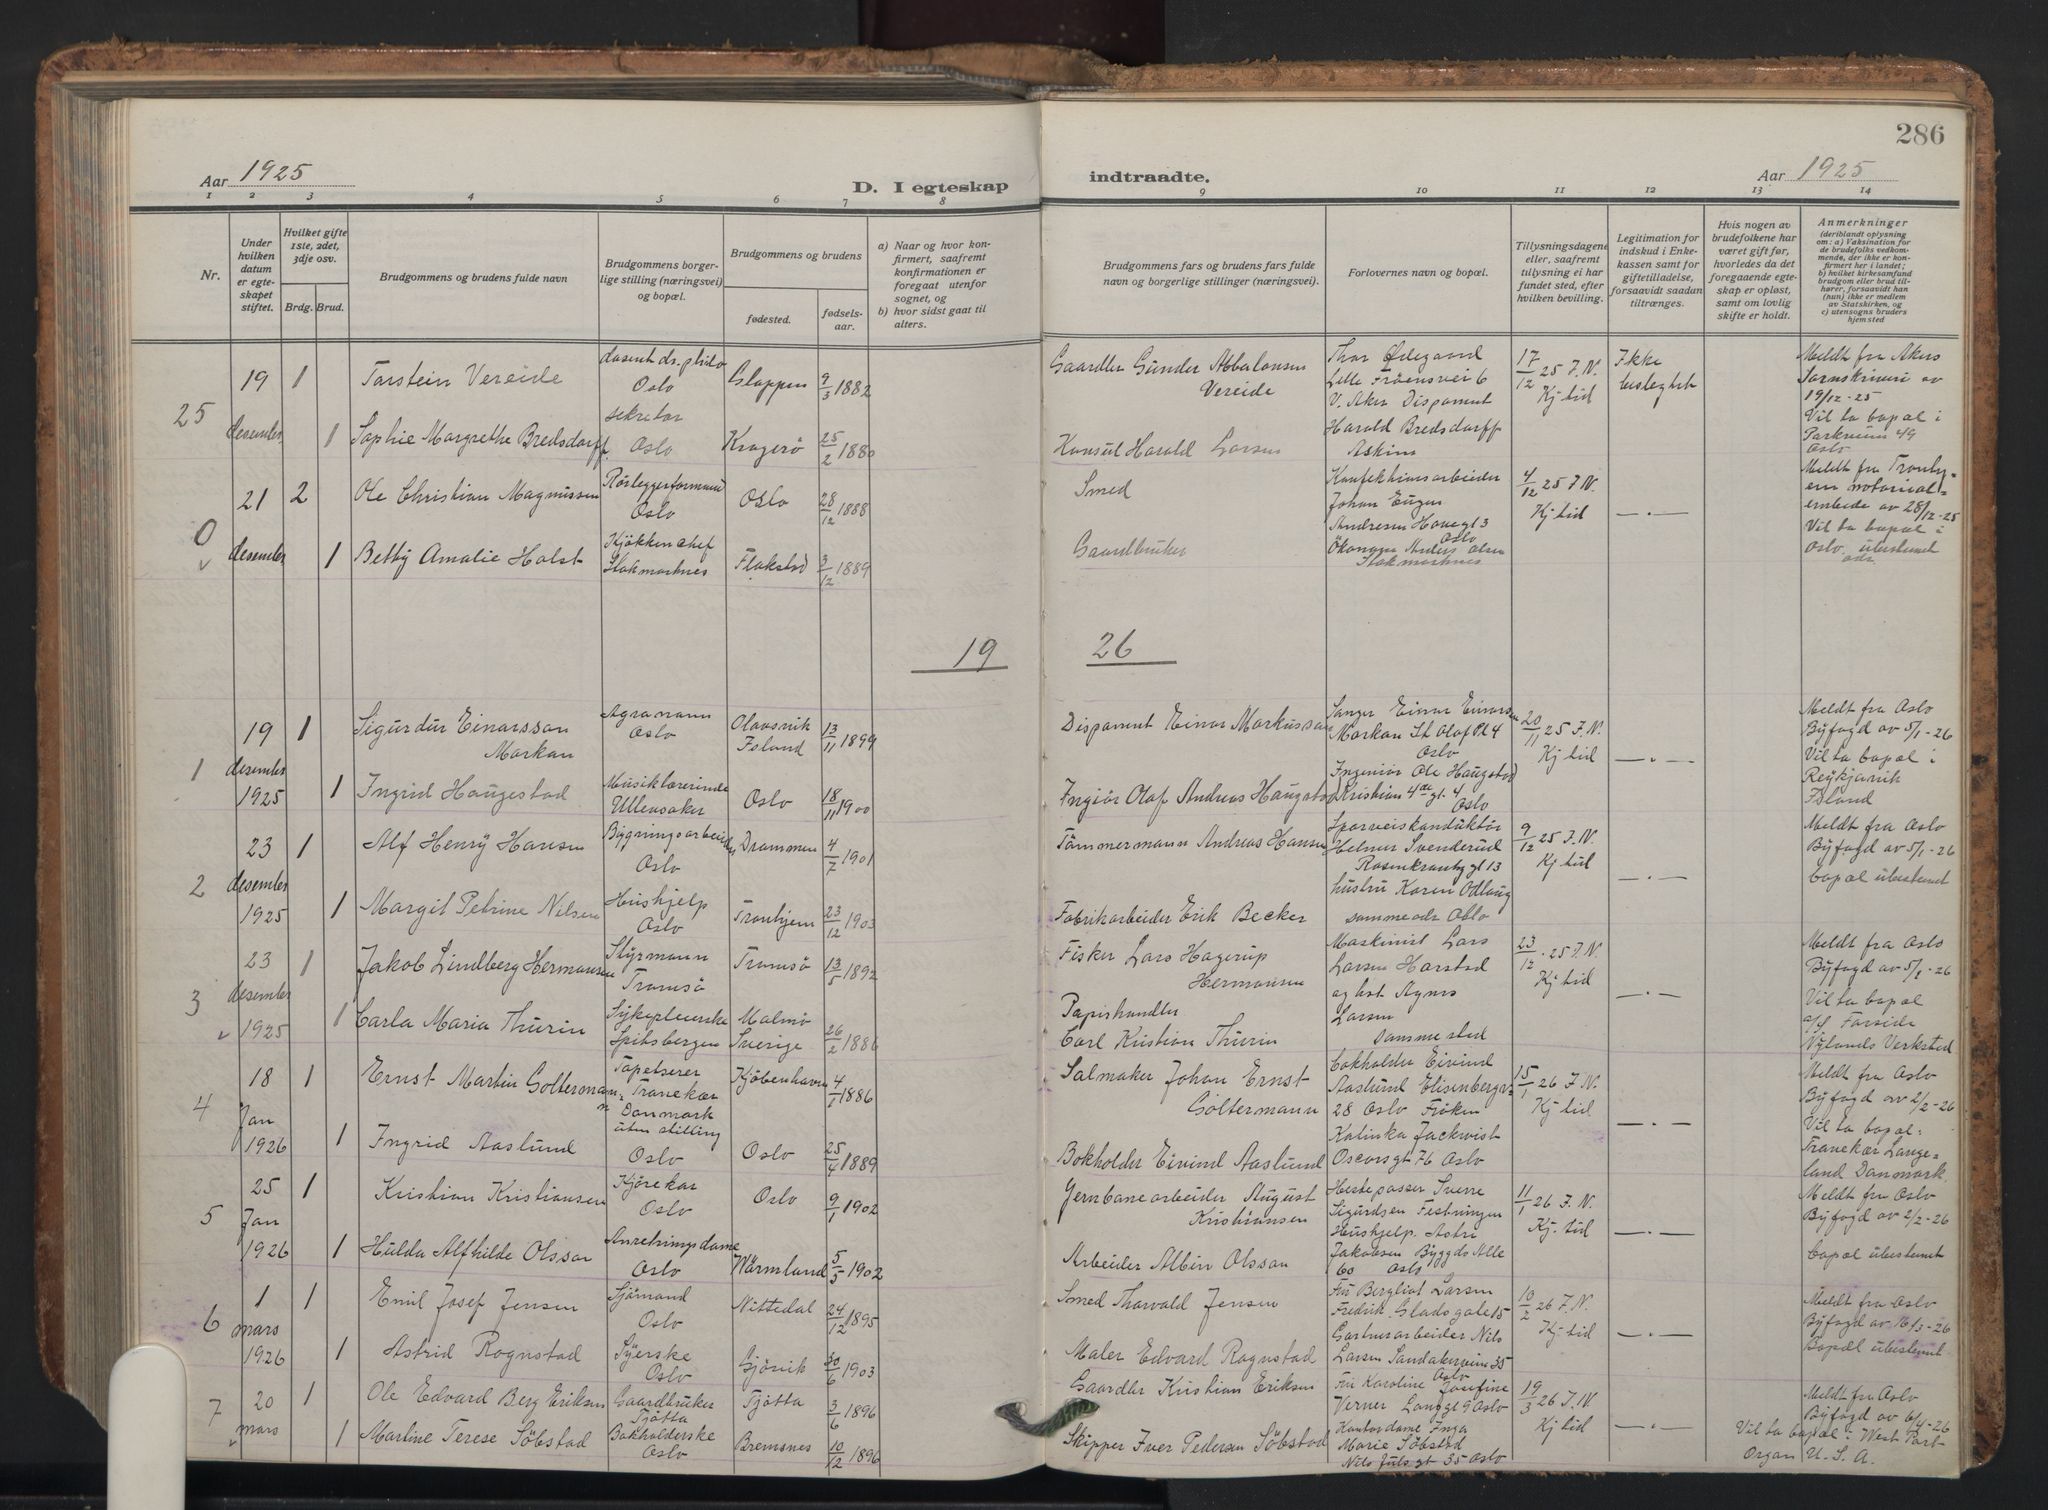 286
Aar 1925
D. I egteskap
indtraadte.
Aar 1925
1 2 3 4 5 6 7 8 9 10 11 12 13 14
Nr.
Under hvilken datum er egteskapet stiftet.
Hvilket gifte 1ste, 2det, 3dje osv.
Brdg. Brud.
Brudgommens og brudens fulde navn
Brudgommens borgerlige stilling (næringsvei) og bopæl.
Brudgommens og brudens
fødested.
fødselsaar.
a) Naar og hvor konfirmert, saafremt konfirmationen er foregaat utenfor sognet, og
b) hvor sidst gaat til alters.
Brudgommens fars og brudens fars fulde navn og borgerlige stillinger (næringsvei).
Forlovernes navn og bopæl.
Tillysningsdagene eller, saafremt tillysning ei har fundet sted, efter hvilken bevilling.
Legitimation for indskud i Enkekassen samt for giftetilladelse, forsaavidt saadan tiltrænges.
Hvis nogen av brudefolkene har været gift før, hvorledes da det foregaaende egteskap er opløst, samt om lovlig skifte er holdt.
Anmerkninger
(deriblandt oplysning om: a) Vaksination for de brudefolks vedkommende, der ikke er konfirmert her i landet; b) hvilket kirkesamfund brudgom eller brud tilhører, forsaavidt han (hun) ikke er medlem av Statskirken, og c) utensogns bruders hjemsted
25
19 desember
1 Torstein Vereide
dosent dr. philos Oslo
Gloppen 9/3 1882
Gaardbr Gunder Abbalonsen Vereide
Thor Ødegaard Lille Frøensvei 6 V. Aker Disponent
17/12 25 F. N. Kj tid
Ikke beslegtet
Meldt fra Akers Sorenskriveri av 19/12-25 Vil ta bopæl i Parkveien 49 Oslo
1 Sophie Margrethe Bredsdorff
sekretær Oslo
Kragerø 25/2 1880
Konsul Harald Larsen
Harald Bredsdorff Askim
0
21 desember
2 Ole Christian Magnussen
Rørleggerformand Oslo
Oslo 28/12 1888
Smed
Konfektionsarbeider Johan Eugen Andresen Havegt 3 Oslo
4/12 25 F. N. Kj tid
— . —
Vil ta bopæl i Oslo, ubestemt adr
1 Betty Amalie Holst
Kjøkkenchef Stokmarknes
Flakstad 3/12 1889
Gaardbruker
Anders Olsen Stokmarknes
19 26
1
19 desember 1925
1 Sigurdur Einarsson Markan
Agronom Oslo
Olavsvik Island 13/11 1899
Disponent Einar Markusson
Sanger Einar Einarsson Markan St Olaf Pl 4 Oslo
20/11 25 F. N. Kj tid
— . —
Meldt fra Oslo Byfogd av 5/1-26 Vil ta bopæl i Reykjavik Island
1 Ingrid Haugestad
Musiklærerinde Ullensaker
Oslo 18/11 1900
Ingiør Olaf Andreas Haugstad
Ingeniør Ole Haugstad Kristian 4de gt. 4 Oslo
2
23 desember 1925
1 Alf Henry Hansen
Bygningsarbeider Oslo
Drammen 4/7 1901
Tømmermann Andreas Hansen
Sporveiskonduktør Helmer Svenderud Rosenkrantzgt 13
9/12 25 F. N. Kj tid
— . —
Meldt fra Oslo Byfogd av 5/1-26 bopæl ubestemt
1 Margit Petrine Nilsen
Hushjelp Oslo
Tronhjem 23/12 1903
Fabrikarbeider Erik Becker
hustru Karen Odlaug samme adr Oslo
3
23 desember 1925
1 Jakob Lindberg Hermansen
Styrmann Tromsø
Tromsø 13/5 1892
Fisker Lars Hagerup Hermansen
Maskinist Lars Larsen Harstad
23/12 . 25 F. N. Kj tid
— . —
Meldt fra Oslo Byfogd av 5/1-26 Vil ta bopæl a/s Farside Nylands Verksted
1 Carla Maria Thurin
Sykepleierske Spitsbergen
Malmø Sverige 26/2 1886
Papirhandler Carl Kristian Thurin
og hst Agnes Larsen samme sted
4
18 Jan 1926
1 Ernst Martin Goltermann
Tapetserer Tranekær Danmark
Kjøbenhavn 4/1 1886
Salmaker Johan Ernst Goltermann
Bokholder Eivind Aaslund Elisenbergv. 28 Oslo Frøken
15/1 26 F. N. Kj tid
— . —
Meldt fra Oslo Byfogd av 2/2-26 Vil ta bopæl: Tranekær Langeland Danmark.
1 Ingrid Aaslund
uten stilling Oslo
Oslo 25/4 1889
Bokholder Eivind Aaslund
Kalinka Jackwist Oscarsgt 76 Oslo
5
25 Jan 1926
1 Kristian Kristiansen
Kjørekar Oslo
Oslo 9/1 1902
Jernbanearbeider August Kristiansen
Hestepasser Sverre Sigurdsen Festningen
11/1 26 F. N. Kj. tid
— . —
Meldt fra Oslo Byfogd av 2/2-26 bopæl ubestemt
1 Hulda Alfhilde Olsson
Anretningsdame Oslo
Wärmland 5/5 1902
Arbeider Albin Olsson
Hushjelp. Astri Jakobsen Bygdø Alle 60 Oslo
6
1 mars 1926
1 Emil Josef Jensen
Sjømand Oslo
Nittedal 24/12 1895
Smed Thorvald Jensen
Fru Bergliot Larsen Fredrik Gladsgate 15
10/2 26 F. N. Kj tid
— . —
Meldt fra Oslo Byfogd av 16/3-26 Bopæl ubestemt
1 Astrid Rognstad
Syerske Oslo
Gjøvik 30/6 1903
Maler Edvard Rognstad
Gartnerarbeider Nils Larsen Sandakerveien 35 Oslo
7
20 mars
1 Ole Edvard Berg Eriksen
Gaardbruker Tjøtta
Tjøtta 3/6 1896
Gaardbr Kristian Eriksen
Fru Karoline Josefine Verner Langge 9 Oslo
19/3 26 F. N. Kj tid
— . —
Meldt fra Oslo Byfogd av 6/4-26 Vil ta bopæl i West Port Organ U. S. A.
1 Martine Terese Søbstad
Bokholderske Oslo
Bremsnes 10/12 1896
Skipper Iver Pedersen Søbstad
Kontordame Inga Marie Søbstad Nils Juls gt 35 Oslo